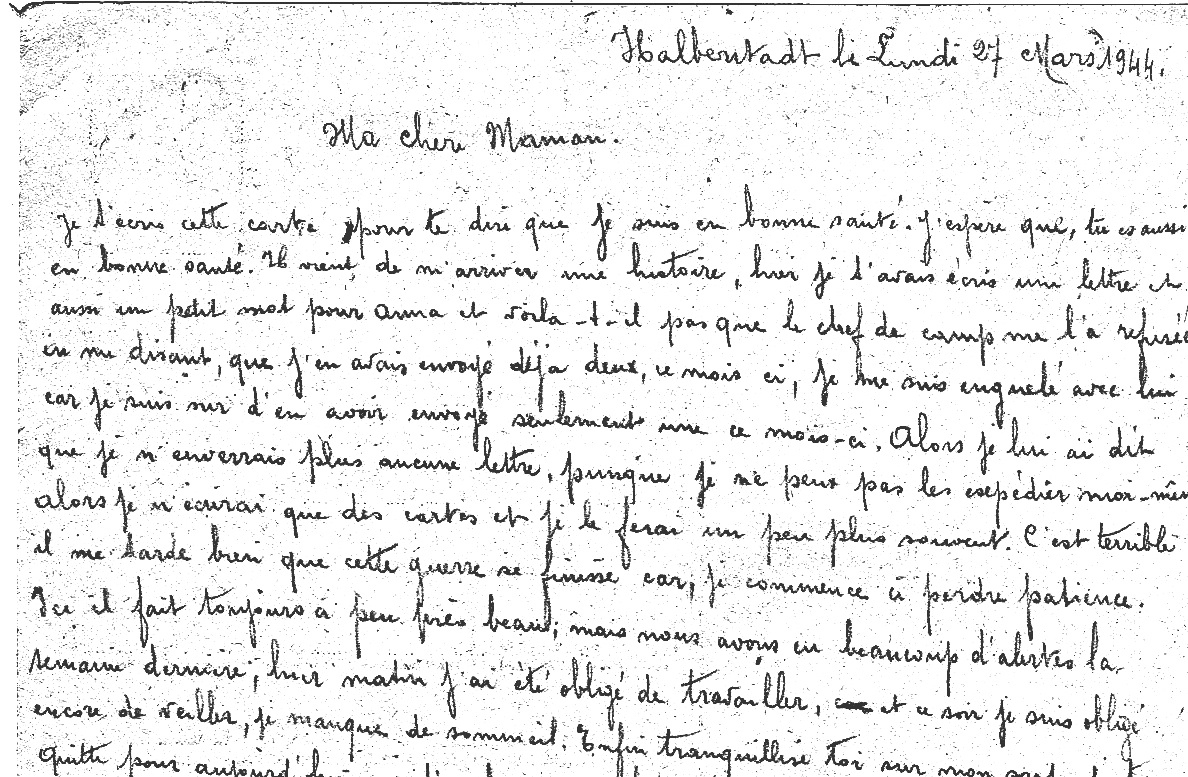 Halberstadt le Lundi 27 Mars 1944.
Ma chère Maman.
Je t'écris cette carte pour te dire que je suis en bonne santé. J'espère que, tu es aussi
en bonne santé. Il vient, de m'arriver une histoire, hier je t'avais écris une lettre et
aussi un petit mot pour Anna et voila-t-il pas que le chef de camp me l'a refusée
en me disant, que j'en avais envoyé déja deux, ce mois ci, je me suis enguelé avec lui
car je suis sur d'en avoir envoyé seulement une ce mois-ci. Alors je lui ai dit
que je n'enverrais plus aucune lettre, puisque je ne peux pas les expédier moi-mêm
alors je n'écrirai que des cartes et je le ferai un peu plus souvent. C'est terrible
il me tarde bien que cette guerre se finisse car, je commence à perdre patience.
Ici il fait toujours à peu près beau, mais nous avons eu beaucoup d'alertes la
semaine dernière, hier matin j'ai été obligé de travailler, et ce soir je suis obligé
encore de veiller, je manque de sommeil. Enfin tranquillise toi sur mon sort
quitte pour aujourd'h